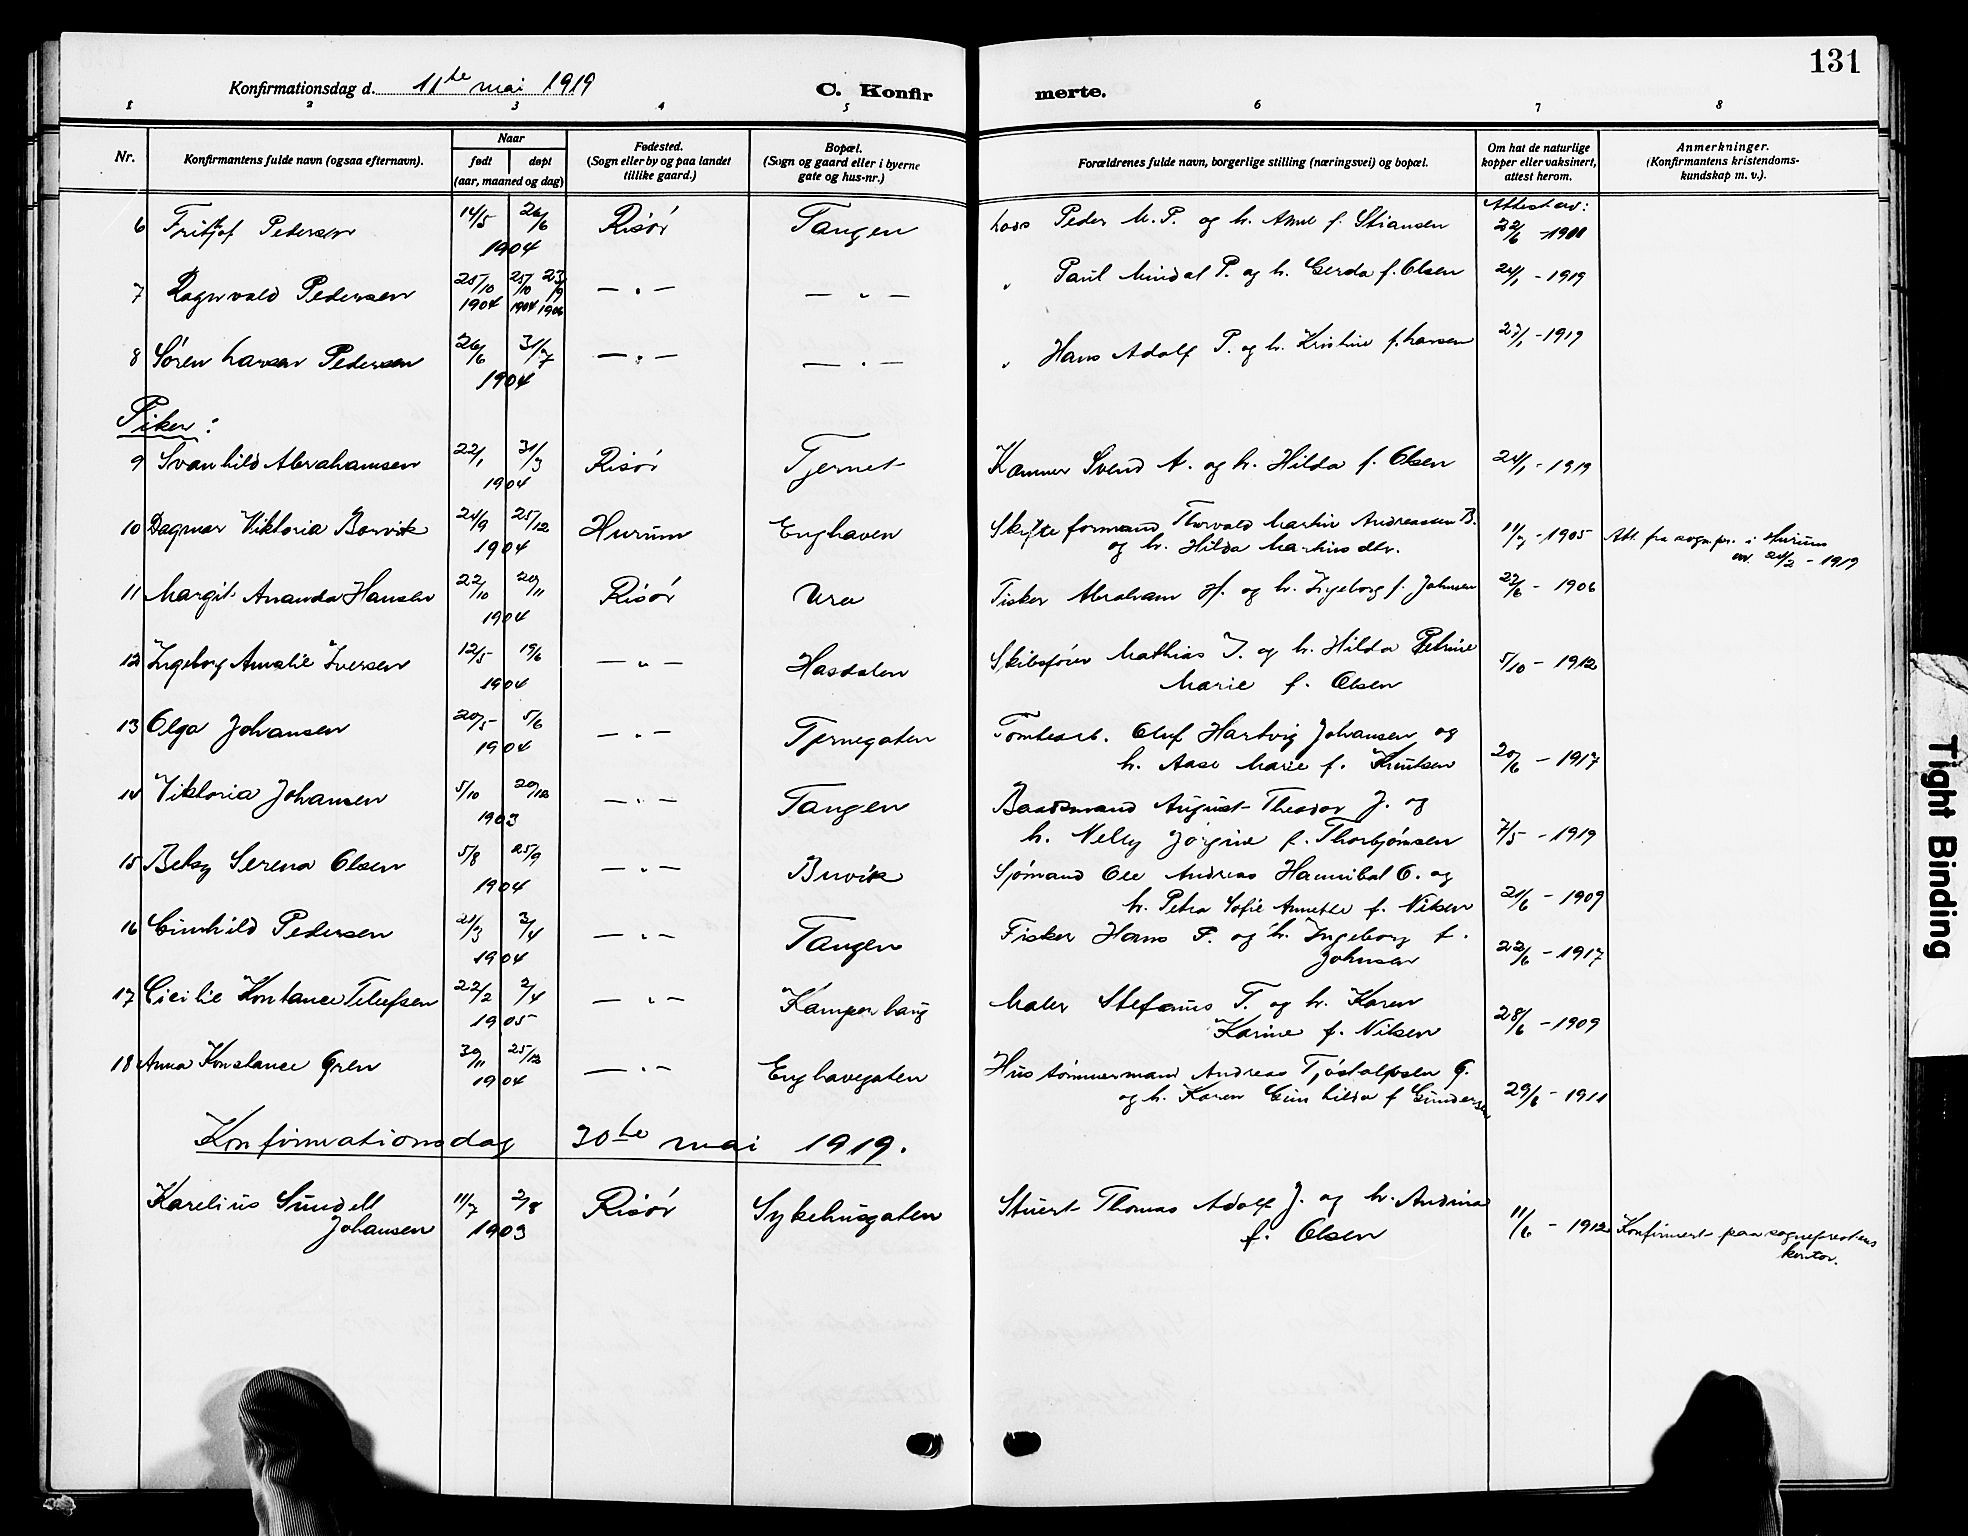 131
Konfirmationsdag d. 11te mai 1919
C. Konfirmerte.
1 2 3 4 5 6 7 8
Nr.
Konfirmantens fulde navn (ogsaa efternavn).
Naar
født døpt
(aar, maaned og dag)
Fødested.
(Sogn eller by og paa landet
tillike gaard.)
Bopæl.
(Sogn og gaard eller i byerne
gate og hus-nr.)
Forældrenes fulde navn, borgerlige stilling (næringsvei) og bopæl.
Om hat de naturlige
kopper eller vaksinert,
attest herom.
Anmerkninger.
(Konfirmantens kristendoms-
kundskap m. v.).
Attest av:
6 Fritjof Pedersen 14/5 26/6 Risör Tangen Lods Peder M. P. og h. f. Stiansen 22/6
1904
7 Ragnvald Pedersen 25/10 25/10 23/9 — " — — " — " Paul Mindal P. og h. Gerda f. Olsen 24/1 - 1919
1904 1904 1906
8 Sören Larsen Pedersen 26/6 31/7 — " — — " — " Hans Adolf P. og h. Kristine f. Larsen 27/1 - 1919
1904
Piker:
9 Svanhild Abrahamsen 22/1 31/3 Risör Tjernet Svend A. og h. Hilda f. Olsen 24/1 - 1919
1904
10 Dagmar Viktoria Borvik 24/9 25/12 Hurum Enghaven Skifteformand Thorvald Martin Andreassen B. 11/7 - 1905 Att. fra sogn.pr. i Hurum
1904 og h. Hilda Martinsdtr. av 24/2 - 1919
11 Margit Amanda Hansen 22/10 20/11 Risör Ura Fisker Abraham H. og h. Ingeborg f. Johnsen 22/6 - 1906
1904
12 Ingeborg Amalie Iversen 12/5 19/6 — " — Hasdalen Skibsförer Mathias I. og h. Hilda Petrine 5/10 - 1912
1904 Marie f. Olsen
13 Olga Johansen 20/5 5/6 — " — Tjernegaten Tomtearb. Oluf Hartvig Johansen og
1904 h. Aase Marie f. Knutsen 20/6 - 1917
14 Viktoria Johansen 5/10 20/12 — " — Tangen Baadsmand August Theodor J. og
1903 h. Nelly Jörgine f. Thorbjörnsen 7/5 - 1919
15 Betsy Serena Olsen 5/8 25/9 — " — Buvik Sjömand Ole Andreas Hannibal O. og
1904 h. Petra Sofie Annette f. Nilsen 21/6 - 1909
16 Gunhild Pedersen 21/3 3/4 — " — Tangen Fisker Hans P. og h. Ingeborg f.
1904 Johnsen 22/6 - 1917
17 Cicilie Konstance Tellefsen 22/2 2/4 — " — Kamperhaug Maler Stefanus T. og h. Karen
1905 Karine f. Nilsen 28/6 - 1909
18 Anna Konstance Gren 30/11 25/12 — " — Enghavegaten Hustömmermand Andreas Tjöstolfsen G.
1904 og h. Karen Gunhilda f Gundersen 29/6 - 1911
Konfirmationsdag 30te mai 1919.
Karelius Sundell 11/7 2/8 Risör Sykehusgaten Stuert Thomas Adolf J. og h. Andrina
Johansen 1903 f. Olsen 11/6 - 1912 Konfirmert paa sogneprestens
kontor.
Tight Binding